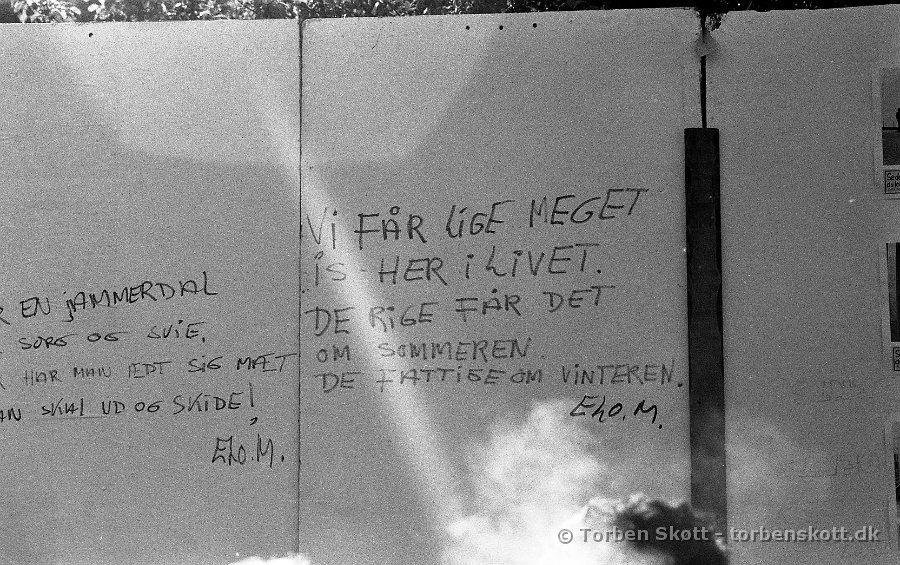 EN JAMMERDAL
SORG OG SVIE.
HAR MAN ÆDT SIG MÆT
SKAL UD OG SKIDE!
Elo.M.
VI FÅR LIGE MEGET
IS HER I LIVET.
DE RIGE FÅR DET
OM SOMMEREN.
DE FATTIGE OM VINTEREN.
Elo.M.
© Torben Skøtt - torbenskott.dk